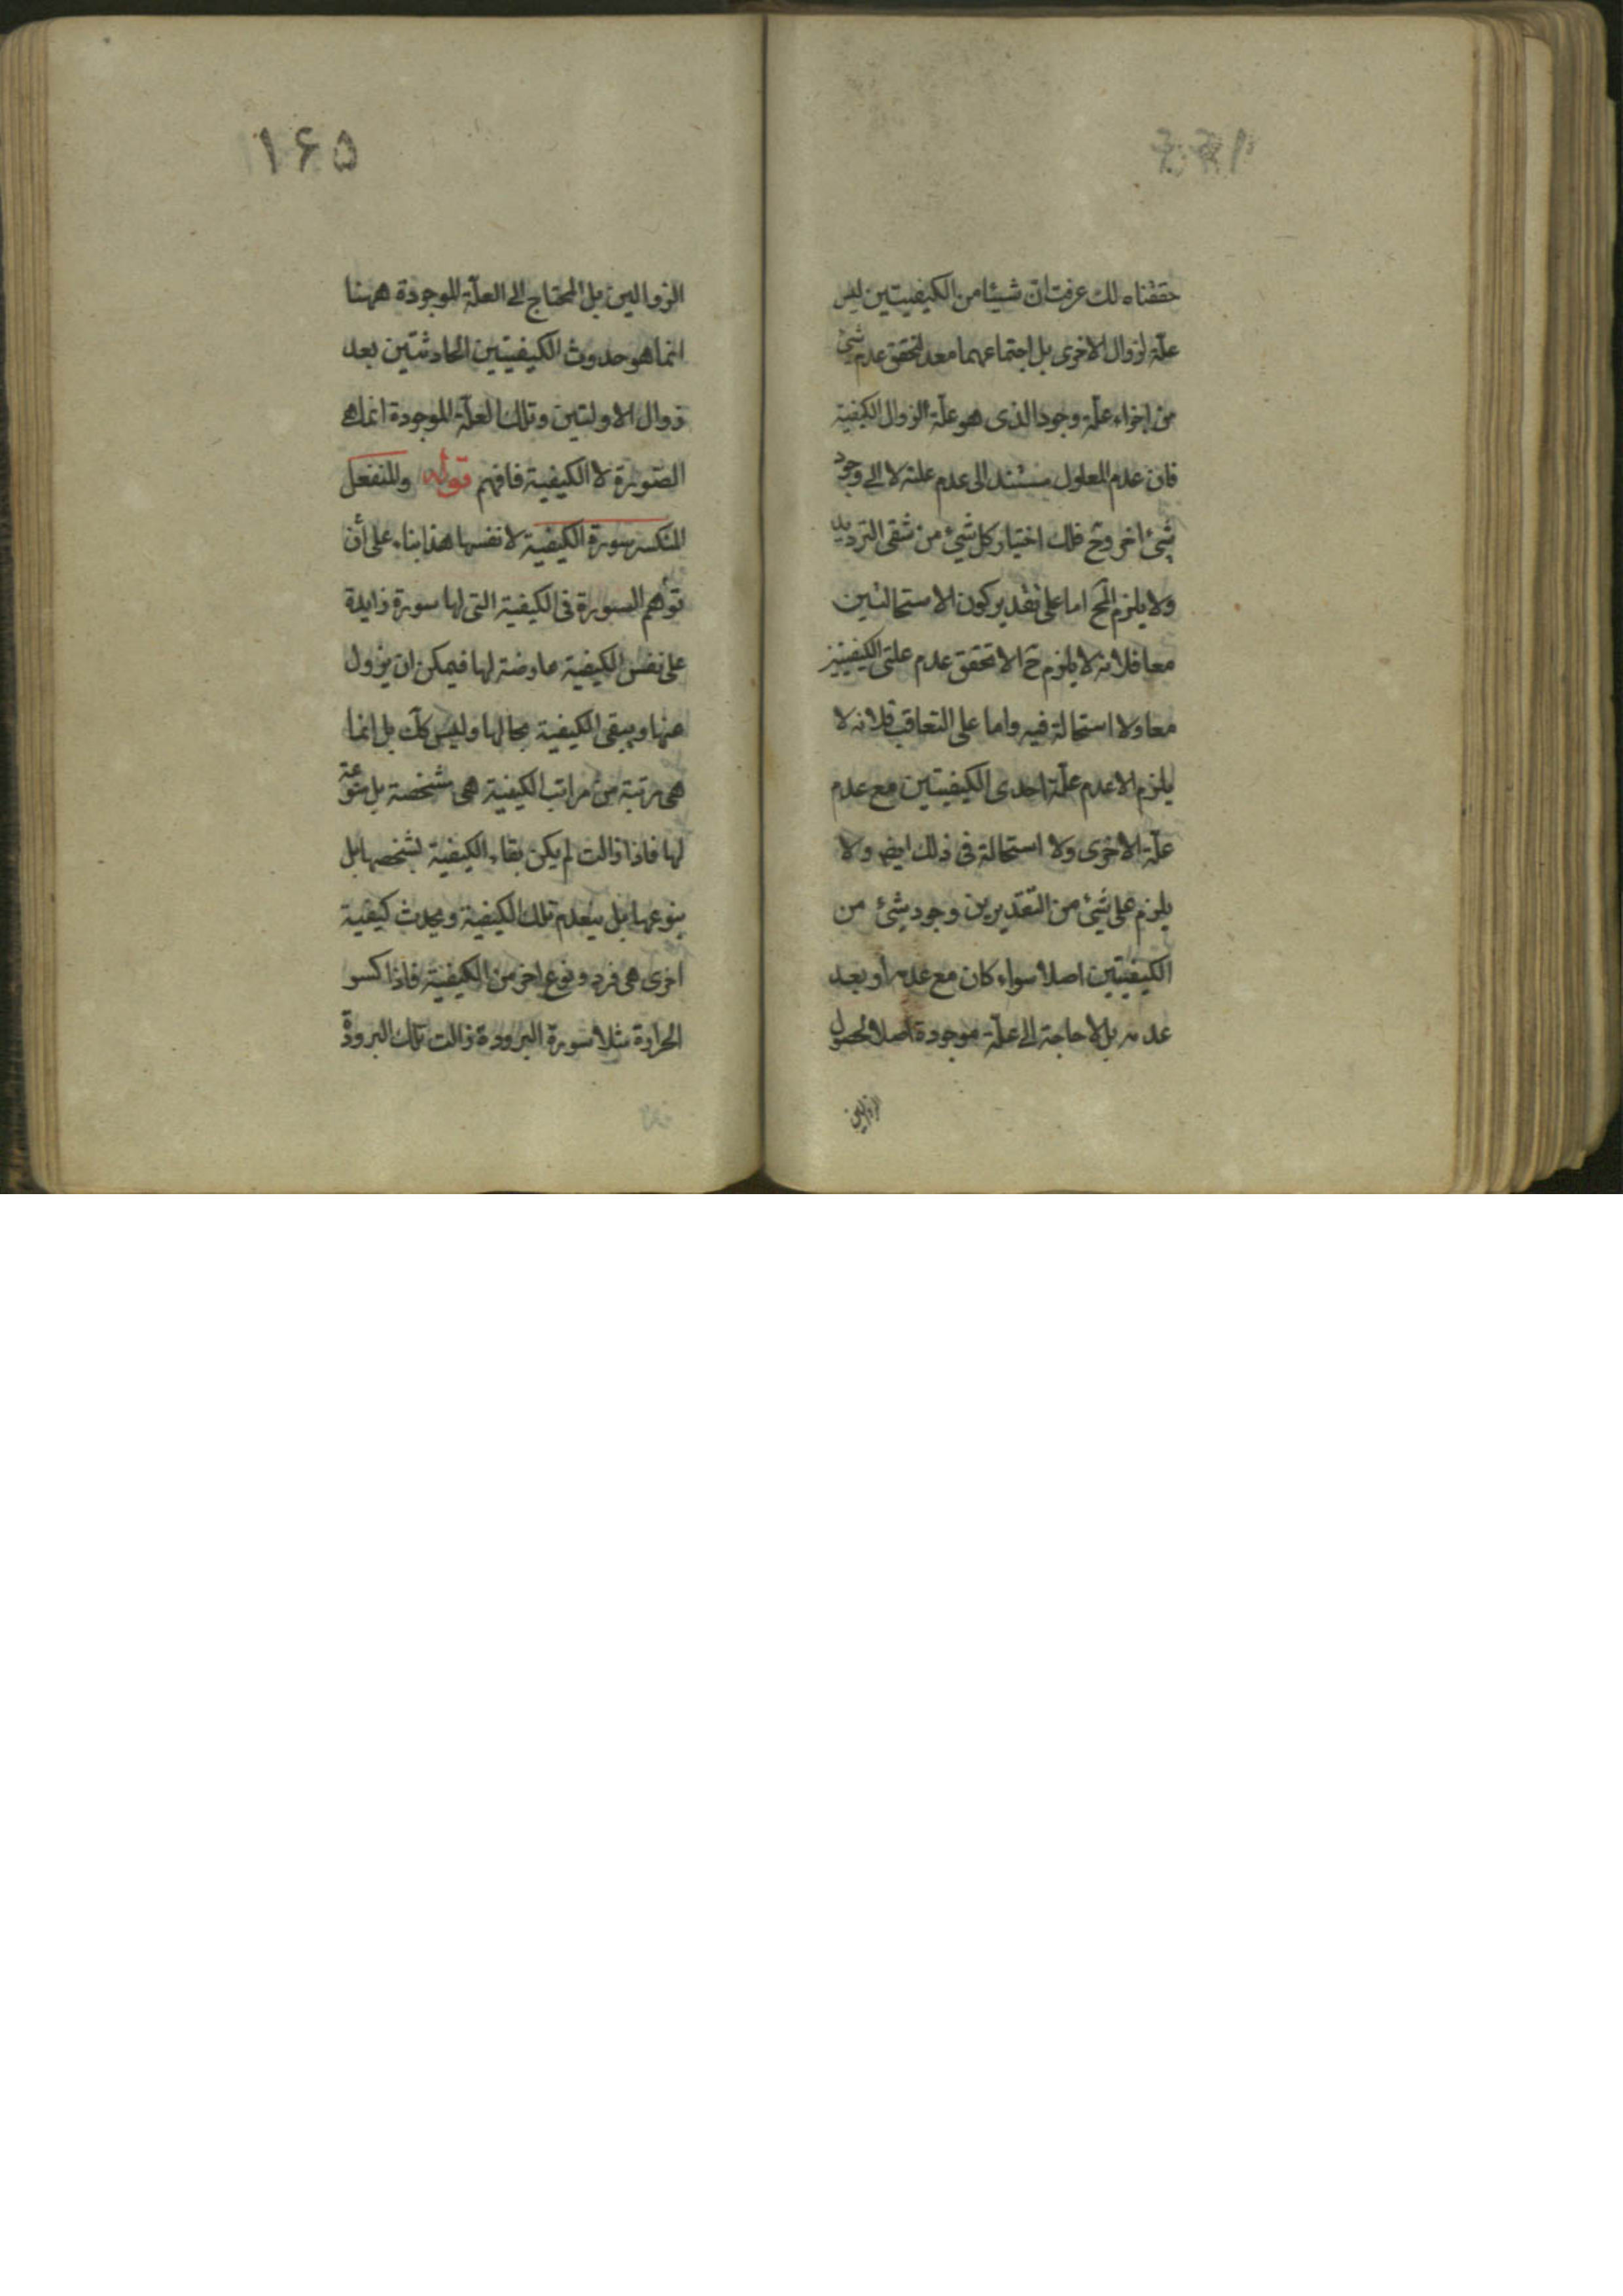 حققناه لك عرفت ان شيئا من الكيفيتين ليس
علّة لزوال الاخرى بل اجتماعهما معد لتحقق عدم شئ
من اجزاء علّة وجود الذى هو علّة الزوال الكيفية
فان عدم المعلول مستند الى عدم علته لا الى وجود
شئ اخر وح فلك اختيار كل شئ من شقى الترديد
ولا يلزم المح اما على تقدير كون الاستحالتين
معا فلانه لا يلزم ح الا تحقق عدم علتى الكيفيتين
معا ولا استحالة فيه واما على التعاقب فلانه لا
يلزم الا عدم علّة احدى الكيفيتين مع عدم
علّة الاخرى ولا استحالة فى ذلك ايضا ولا
يلزم على شئ من التقديرين وجود شئ من
الكيفيتين اصلا سواء كان مع عدمه او بعد
عدمه بل لا حاجة الى علّة موجودة اصلا لحصول
الزوالين
١۶۵
الزوالين بل المحتاج الى العلّة الموجودة ههنا
انما هو حدوث الكيفيتين الحادثتين بعد
زوال الاولتين وتلك العلّة الموجودة انما هى
الصّورة لا الكيفية فافهم قوله والمنفعل
المنكسر سورة الكيفية لا نفسها هذا بناء على أن
توهم السورة فى الكيفية التى لها سورة زايدة
على نفس الكيفية عارضة لها فيمكن ان يزول
عنها ويبقى الكيفية بحالها وليس كك بل انما
هى مرتبة من مراتب الكيفية هى مشخصة بل منوّعة
لها فاذا زالت لم يكن بقاء الكيفية بشخصها بل
بنوعها بل ينعدم تلك الكيفية ويحدث كيفية
اخرى هى فرد ونوع اخر من الكيفية فاذا كسر
الحرارة مثلا سورة البرودة زالت تلك البرودة